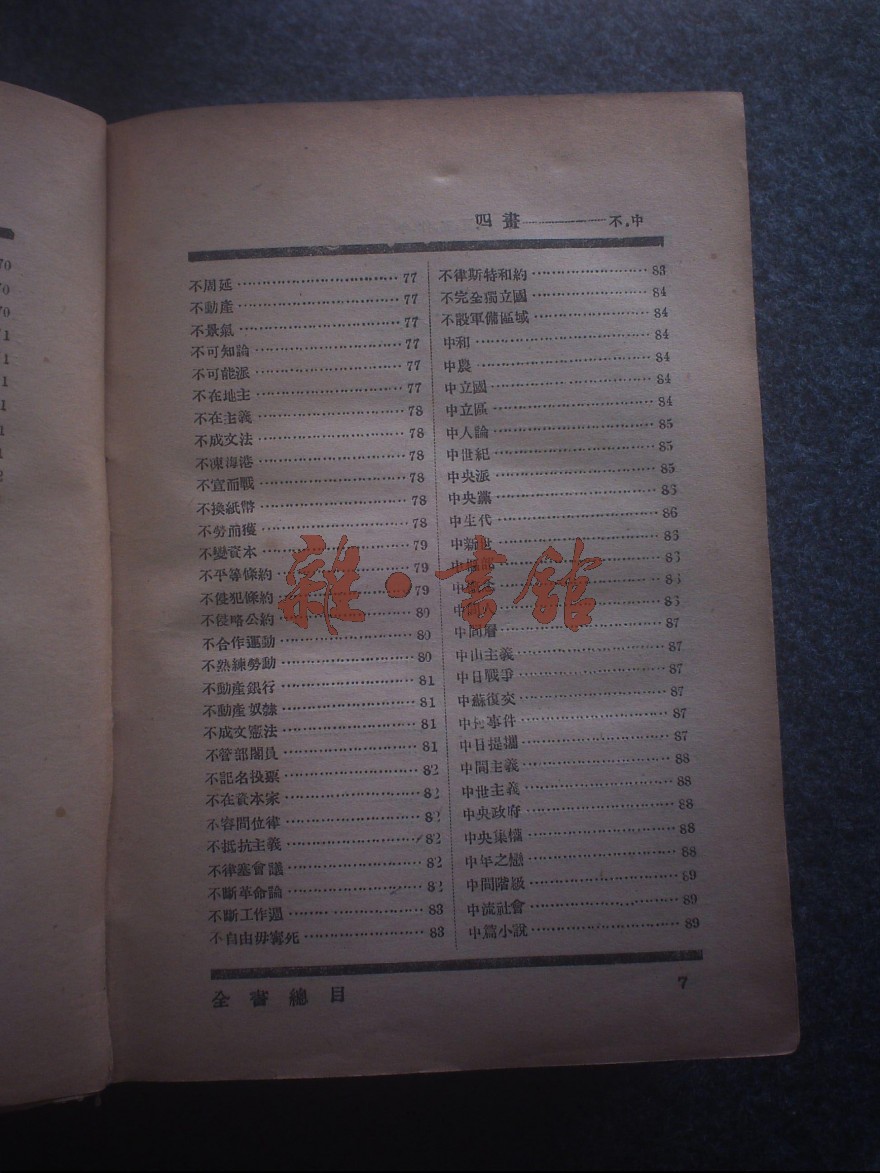 四畫————不.中
不周延 77
不動產 77
不景氣 77
不可知論 77
不可能派 77
不在地主 77
不在主義 78
不成文法 78
不凍海港 78
不宣而戰 78
不換紙幣 78
不勞而獲 78
不變資本 79
不平等條約 79
不侵犯條約 79
不侵略公約 80
不合作運動 80
不熟練勞動 80
不動產銀行 81
不動產奴隸 81
不成文憲法 81
不管部閣員 81
不記名投票 82
不在資本家 82
不容間位律 82
不抵抗主義 82
不律塞會議 82
不斷革命論 82
不斷工作週 83
不自由毋寧死 83
不律斯特和約 83
不完全獨立國 84
不設軍備區域 84
中和 84
中農 84
中立國 84
中立區 84
中人論 85
中世紀 85
中央派 85
中央黨 86
中生代 86
中新世 86
86
86
86
中間層 87
中山主義 87
中日戰爭 87
中蘇復交 87
事件 87
中日提攜 87
中間主義 88
中世主義 88
中央政府 88
中央集權 88
中年之戀 88
中間階級 89
中流社會 89
中篇小說 89
全書總目
7
雜·書館
70
70
70
71
1
1
1
1
1
2